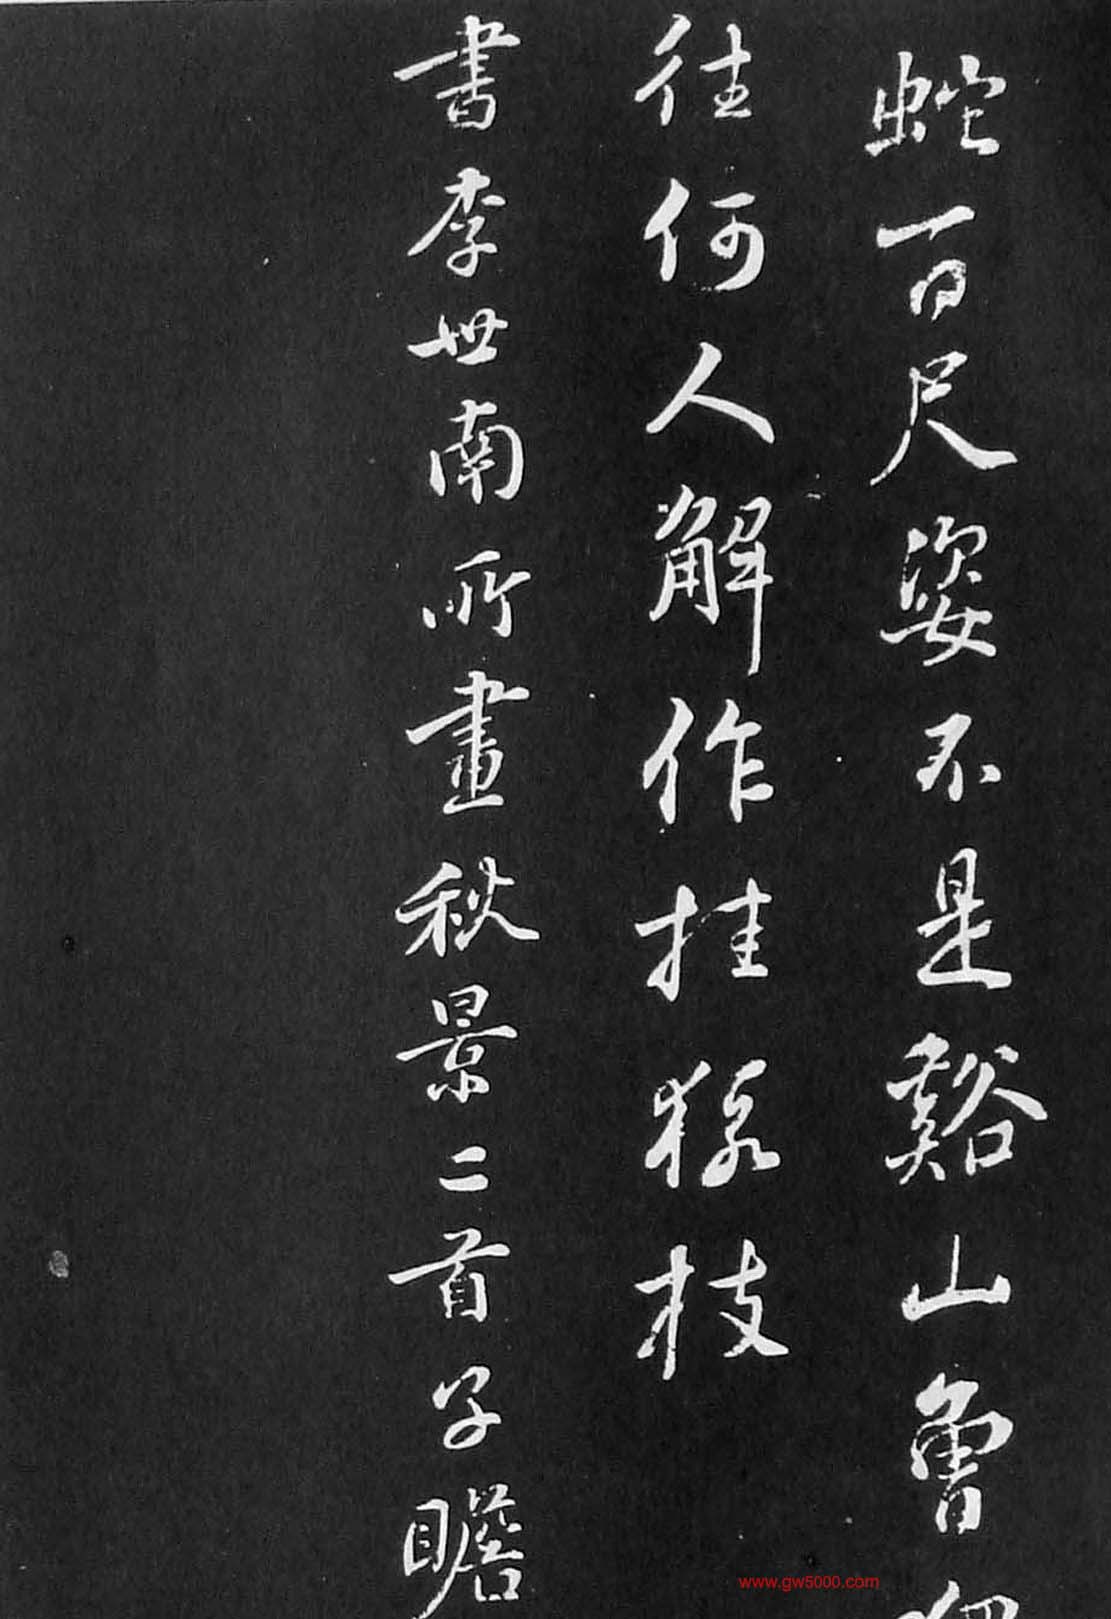 蛇百尺姿不是谿山曾
往何人解作挂猿枝
書李世南所畫秋景二首子瞻
www.gw5000.com